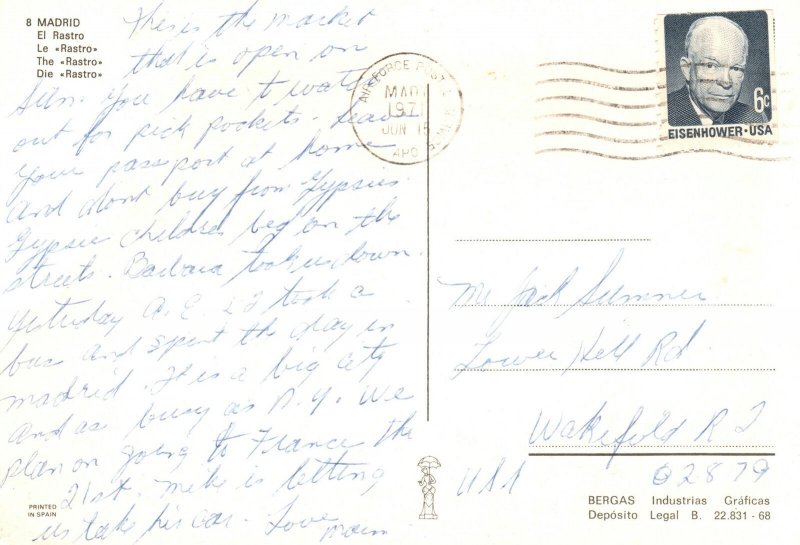 8 MADRID
El Rastro
Le «Rastro»
The «Rastro»
Die «Rastro»
This is the market
that is open on
Sun. You have to watch
out for pick pockets. Leave
your passport at home
and dont buy from Gypsies.
Gypsie children beg on the
streets. Barbara took us down.
Yesterday A. E. & I took a
bus and spent the day in
madrid. It is a big city
and as busy as N.Y. We
plan on going to France the
21st. Mike is letting
us take his car. Love mom
PRINTED
IN SPAIN
AIR FORCE POST
1971
JUN 15
APO
6c
EISENHOWER·USA
Mr Jack Sumner
Tower Hill Rd.
Wakefield R I
USA 02879
BERGAS Industrias Gráficas
Depósito Legal B. 22.831 - 68